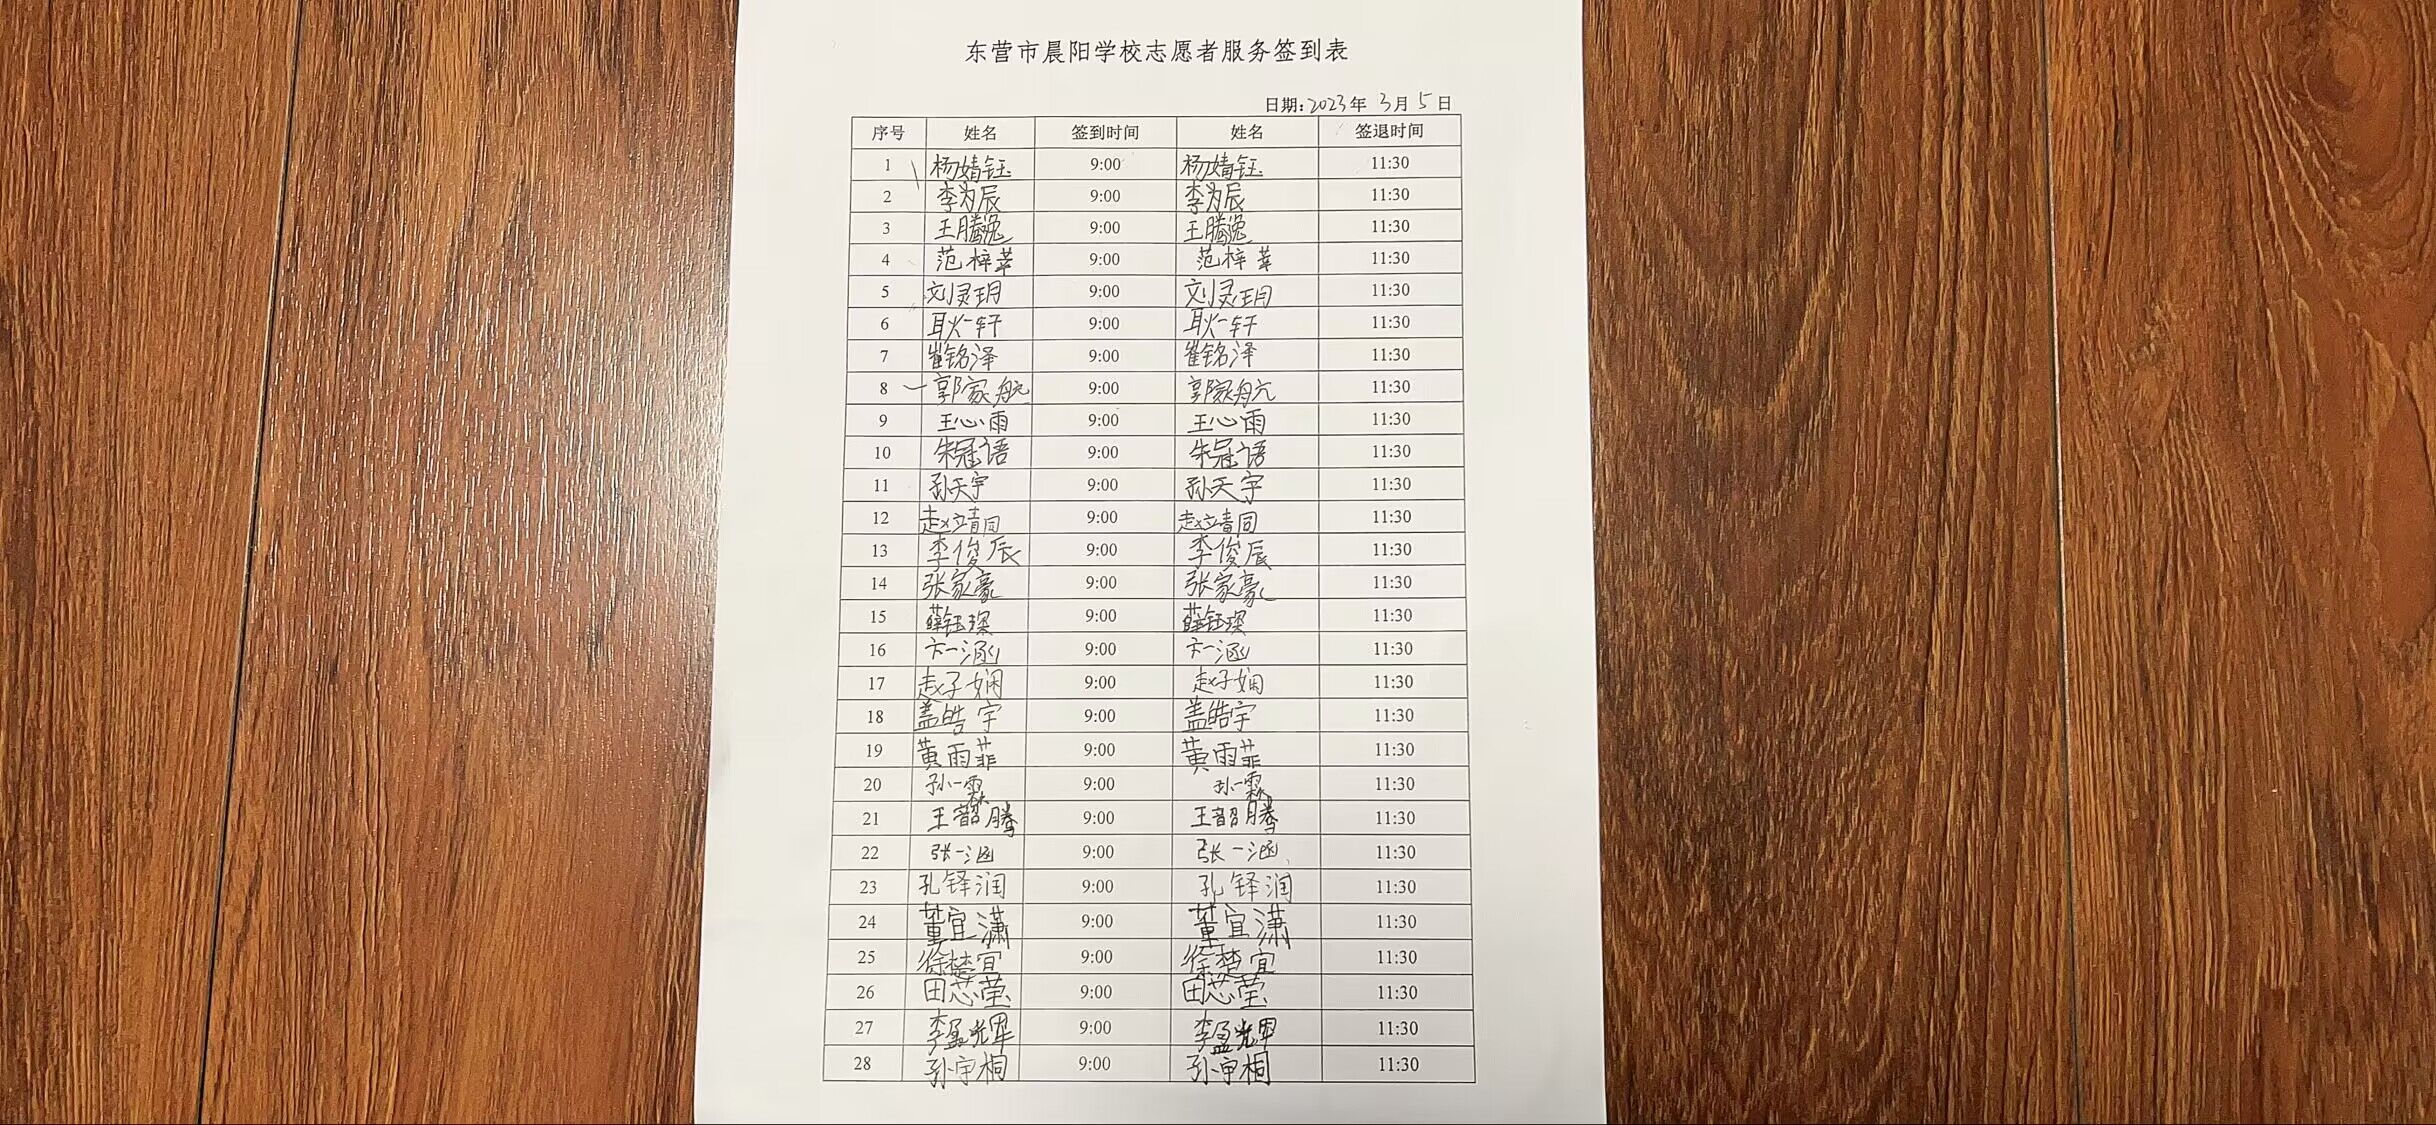 东营市晨阳学校志愿者服务签到表
日期:2023年 3月 5日
序号 姓名 签到时间 姓名 签退时间
1 杨婧钰 9:00 杨婧钰 11:30
2 李为辰 9:00 李为辰 11:30
3 王腾逸 9:00 王腾逸 11:30
4 范梓莘 9:00 范梓莘 11:30
5 刘灵玥 9:00 刘灵玥 11:30
6 耿一轩 9:00 耿一轩 11:30
7 崔铭泽 9:00 崔铭泽 11:30
8 郭家航 9:00 郭家航 11:30
9 王心雨 9:00 王心雨 11:30
10 朱冠语 9:00 朱冠语 11:30
11 孙天宇 9:00 孙天宇 11:30
12 赵靖同 9:00 赵靖同 11:30
13 李俊辰 9:00 李俊辰 11:30
14 张家豪 9:00 张家豪 11:30
15 薛钰琛 9:00 薛钰琛 11:30
16 卞一涵 9:00 卞一涵 11:30
17 赵子娴 9:00 赵子娴 11:30
18 盖皓宇 9:00 盖皓宇 11:30
19 黄雨菲 9:00 黄雨菲 11:30
20 孙一霖 9:00 孙一霖 11:30
21 王韶腾 9:00 王韶腾 11:30
22 张一涵 9:00 张一涵 11:30
23 孔铎润 9:00 孔铎润 11:30
24 董宜潇 9:00 董宜潇 11:30
25 徐楚宜 9:00 徐楚宜 11:30
26 田芯莹 9:00 田芯莹 11:30
27 李盈辉 9:00 李盈辉 11:30
28 孙宇桐 9:00 孙宇桐 11:30